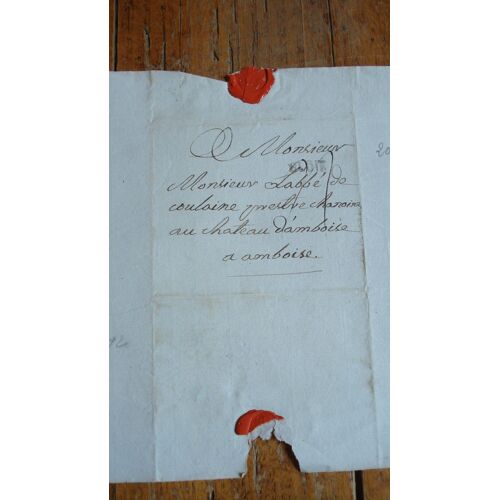 A Monsieur
Monsieur Labbé de
coulaine prestre chanoine
au chateau d'amboise
a amboise.